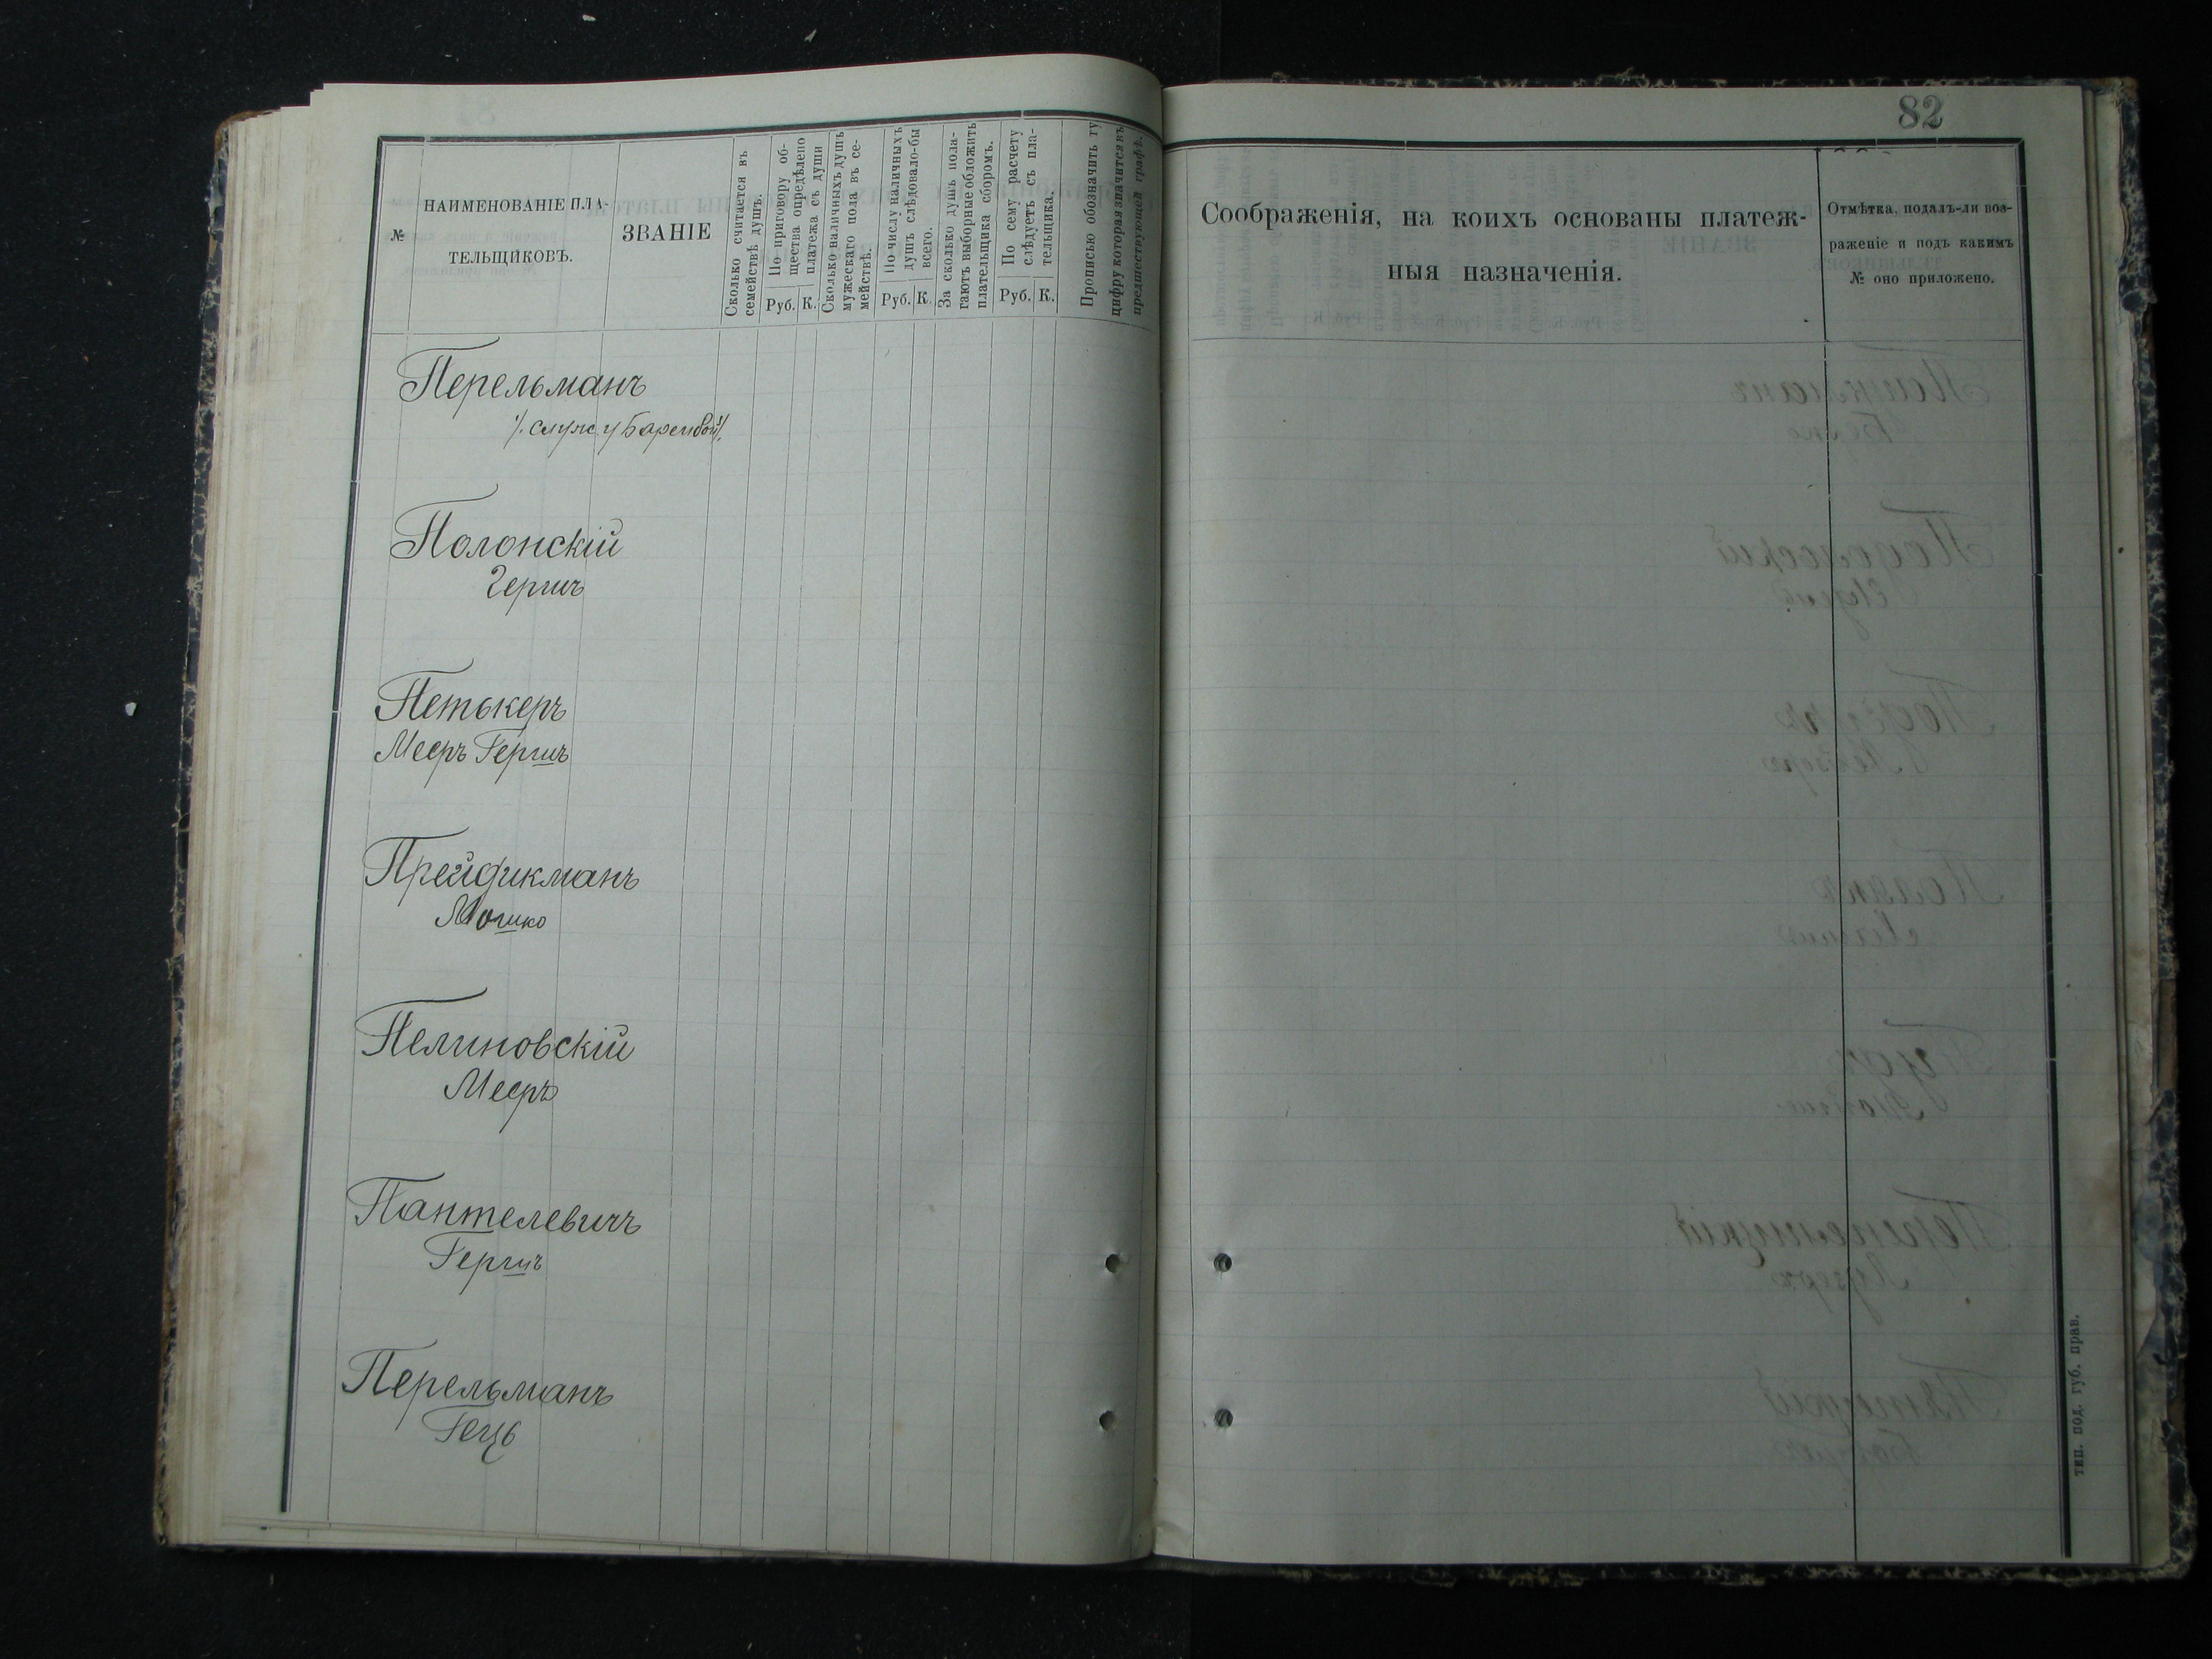 №
НАИМЕНОВАНІЕ ПЛА-
ТЕЛЬЩИКОВЪ.
ЗВАНІЕ
Сколько считается въ
семействѣ душъ.
По приговору об-
щества опредѣлено
платежа съ души
Руб. К.
Сколько наличныхъ душъ
мужескаго пола въ се-
мействѣ.
По числу наличныхъ
душъ слѣдовало-бы
всего.
Руб. К.
За сколько душъ пола-
гаютъ выборные обложить
плательщика сборомъ.
По сему расчету
слѣдуетъ съ пла-
тельщика.
Руб. К.
Прописью обозначить ту
цифру которая значится въ
предшествующей графѣ.
Перельманъ
служ. у
Полонскій
Гершъ
Петькеръ
Мееръ Гершъ
Прейдикманъ
Мошко
Пелиновскій
Мееръ
Пантелевичъ
Гершъ
Перельманъ
Гецъ
82
Соображенія, на коихъ основаны платеж-
ныя назначенія.
Отмѣтка, подалъ-ли воз-
раженіе и подъ какимъ
№ оно приложено.
тип. под. губ. прав.